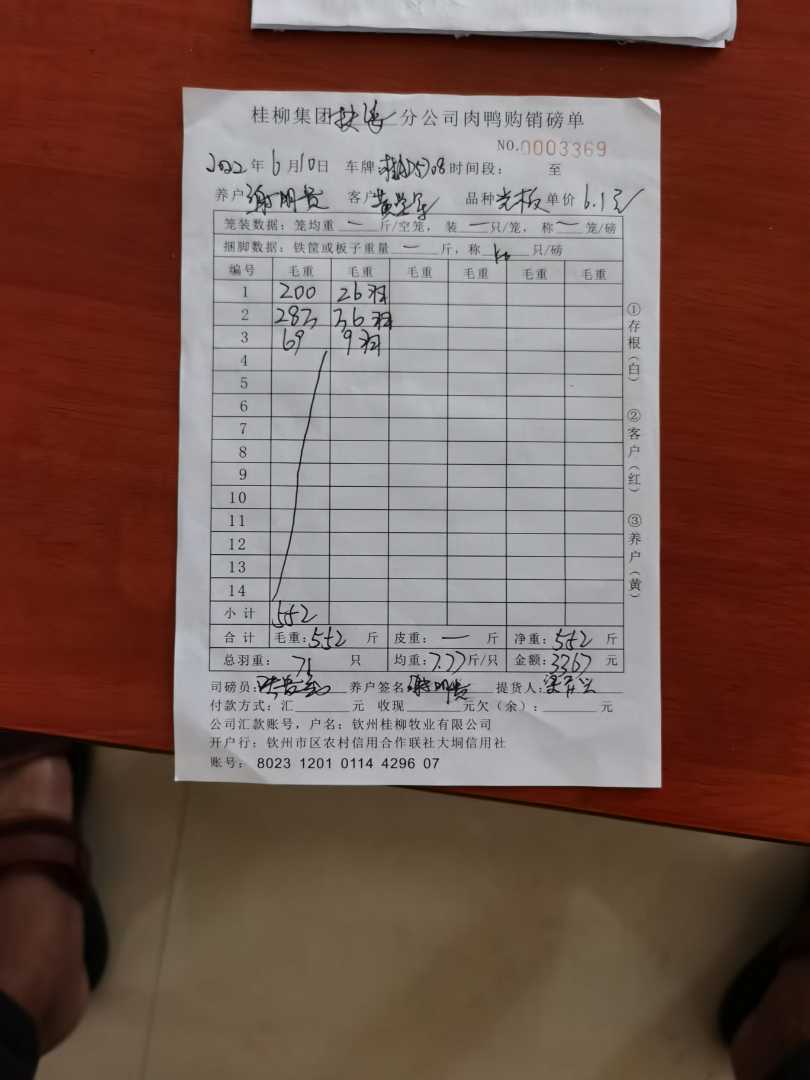 桂柳集团 分公司肉鸭购销磅单
NO.0003369
2022年6月10日 车牌: 时间段: 至
养户 谢明贵 客户 黄 品种 光板 单价 6.1元
笼装数据: 笼均重 一 斤/空笼, 装 一 只/笼, 称 一 笼/磅
捆脚数据: 铁筐或板子重量 一 斤, 称 只/磅
编号 毛重 毛重 毛重 毛重 毛重 毛重
1 200 26羽
2 283 36羽
3 69 9羽
4
5
6
7
8
9
10
11
12
13
14
小计 552
合计 毛重: 552 斤 皮重: 一 斤 净重: 552 斤
总羽重: 71 只 均重: 7.77 斤/只 金额: 3367 元
司磅员: 养户签名 谢明贵 提货人:
付款方式: 汇 元 收现 元欠(余): 元
公司汇款账号, 户名: 钦州桂柳牧业有限公司
开户行: 钦州市区农村信用合作联社大垌信用社
账号: 8023 1201 0114 4296 07
①存根(白)
②客户(红)
③养户(黄)